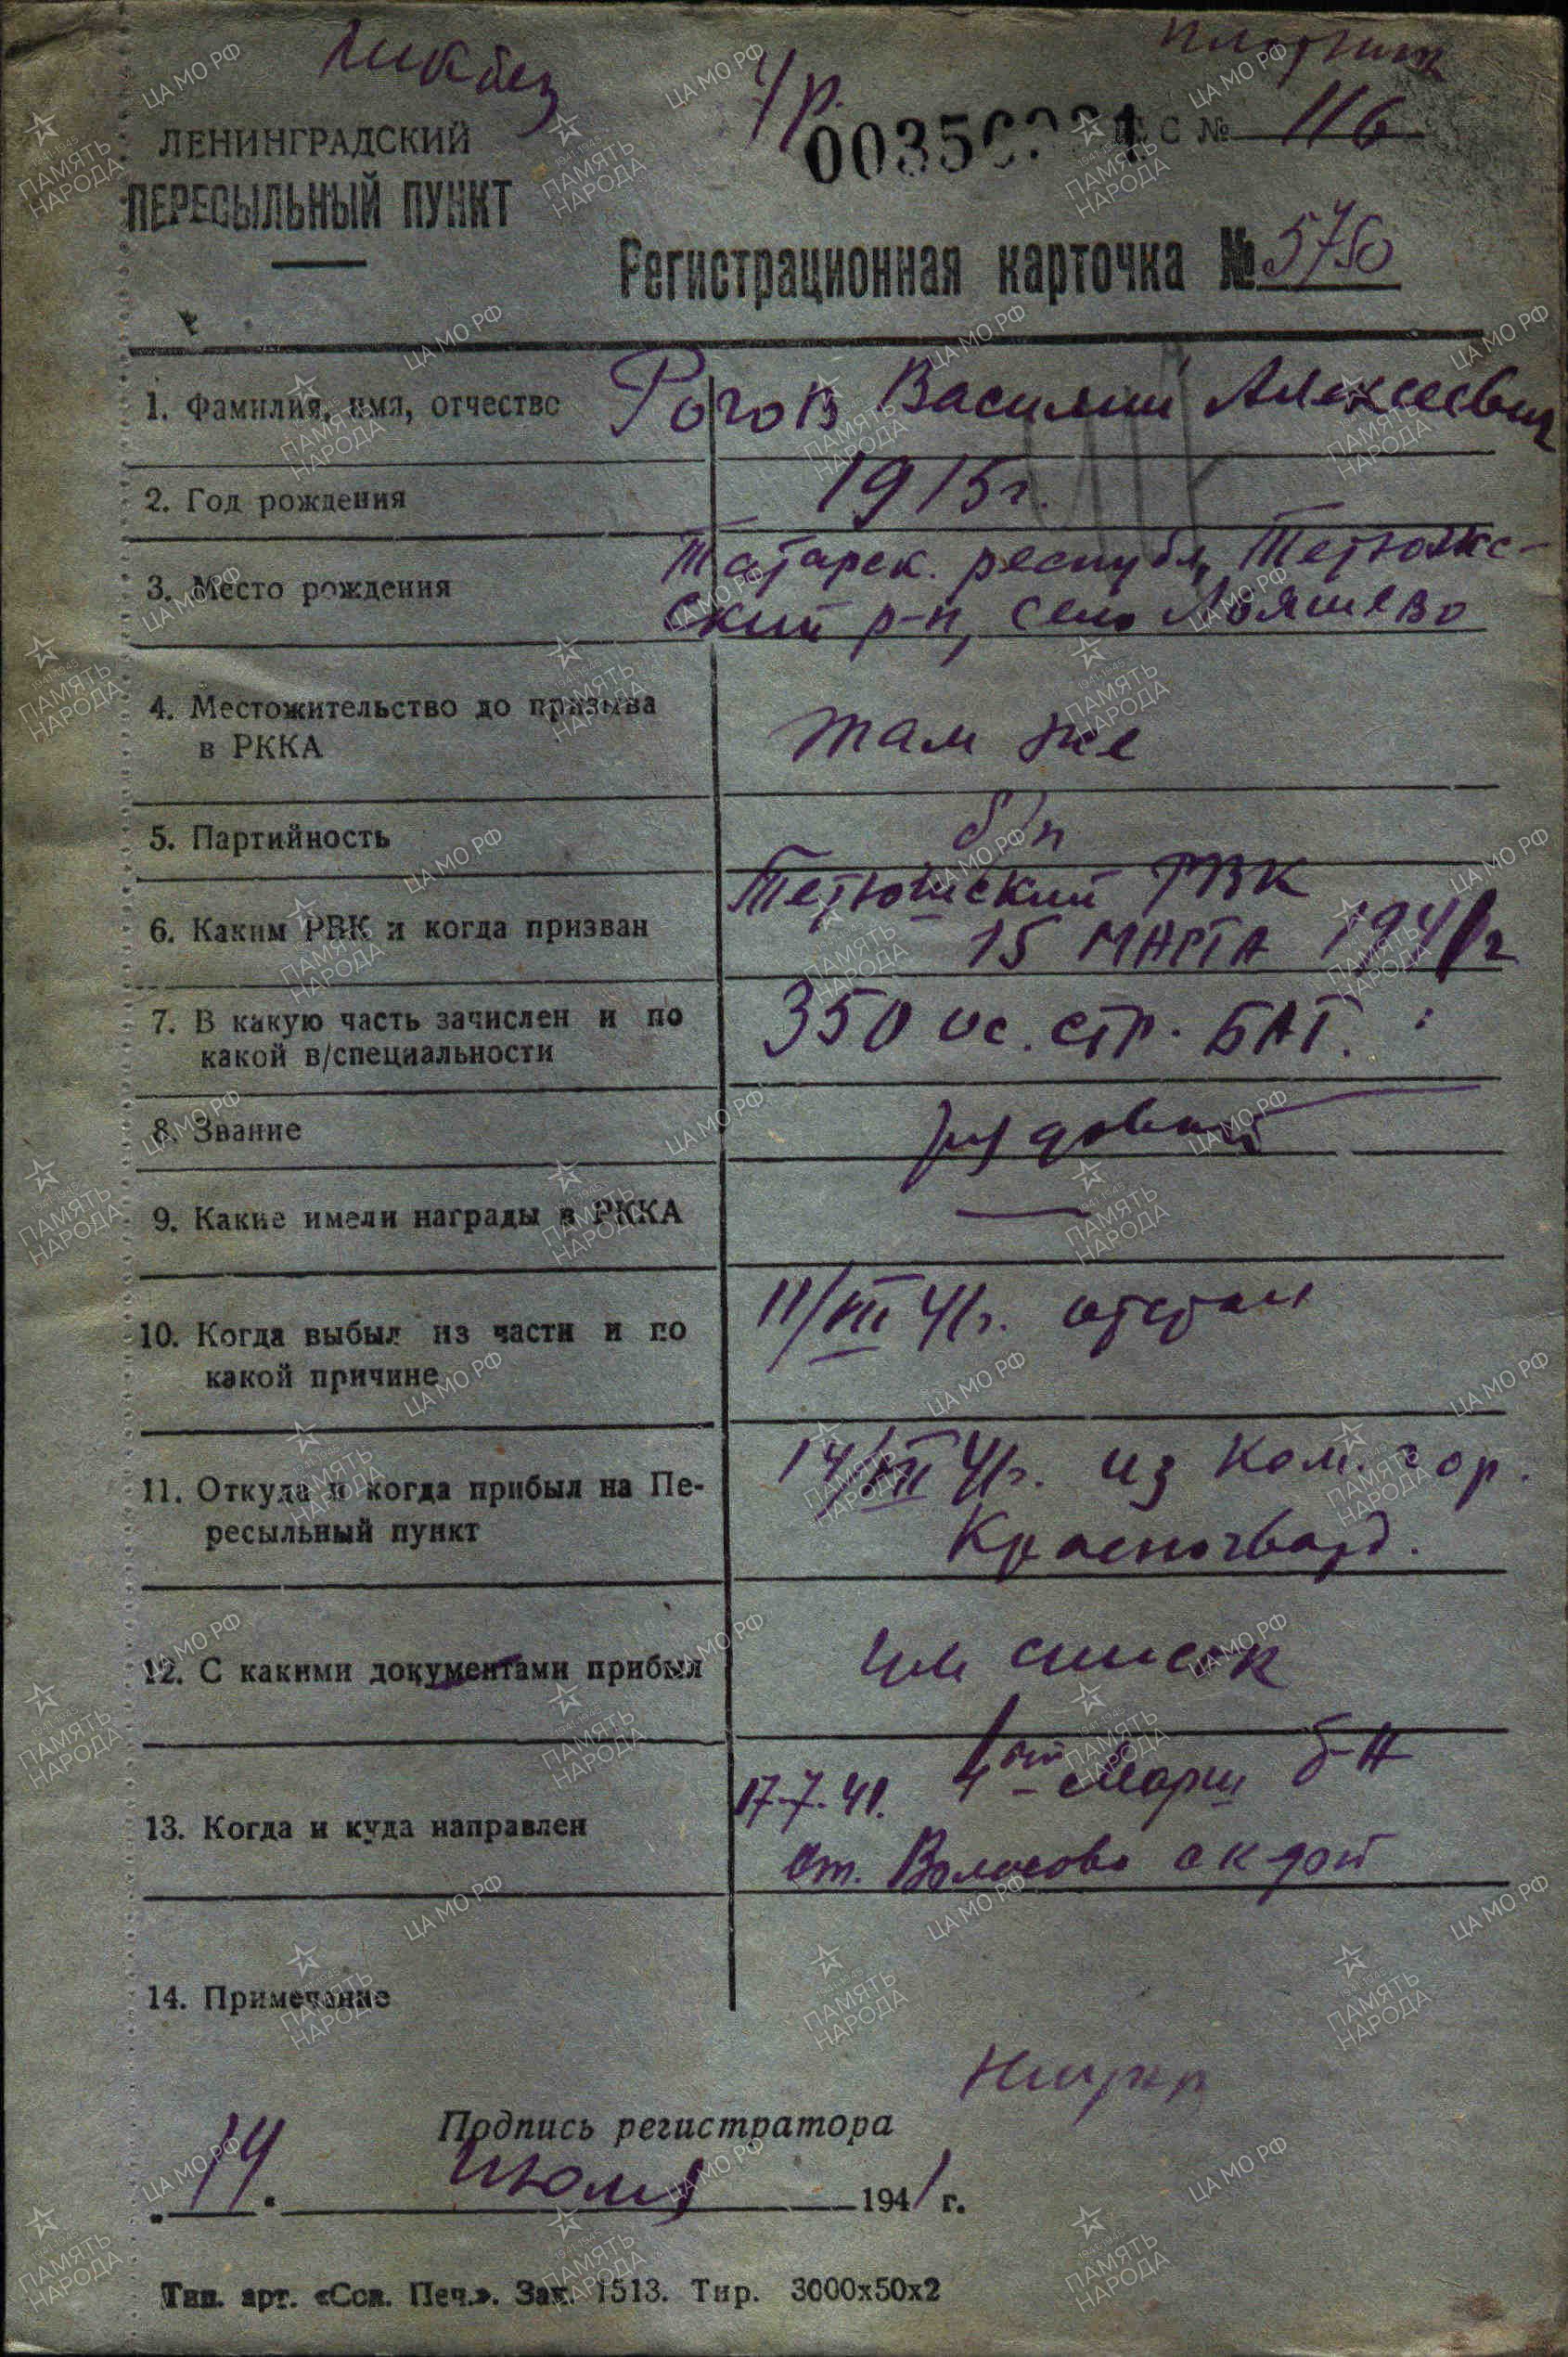 Ликбез
ч/р.
плотник
ЛЕНИНГРАДСКИЙ
ПЕРЕСЫЛЬНЫЙ ПУНКТ
С № 116
Регистрационная карточка № 5750
1. Фамилия, имя, отчество Рогов Василий Алексеевич
2. Год рождения 1915г.
3. Место рождения Татарск. республ, Тетюшс-
ский р-н, село Ляшево
4. Местожительство до призыва
в РККА там же
5. Партийность б/п
6. Каким РВК и когда призван Тетюшский РВК
15 МАРТА 1941г
7. В какую часть зачислен и по
какой в/специальности 350 ос. стр. БАТ.
8. Звание рядовой
9. Какие имели награды в РККА —
10. Когда выбыл из части и по
какой причине 11/VII 41г. отстал
11. Откуда и когда прибыл на Пе-
ресыльный пункт 14/VII 41г. из Ком. гор.
Красногвард.
12. С какими документами прибыл им список
13. Когда и куда направлен 17.7.41. 4ый Марш б-н
ст. Волосово
14. Примечание
Подпись регистратора
14. июля 1941 г.
Тип. арт. «Сов. Печ.». Зак. 1513. Тир. 3000х50х2
ЦА МО РФ
1941-1945
ПАМЯТЬ
НАРОДА